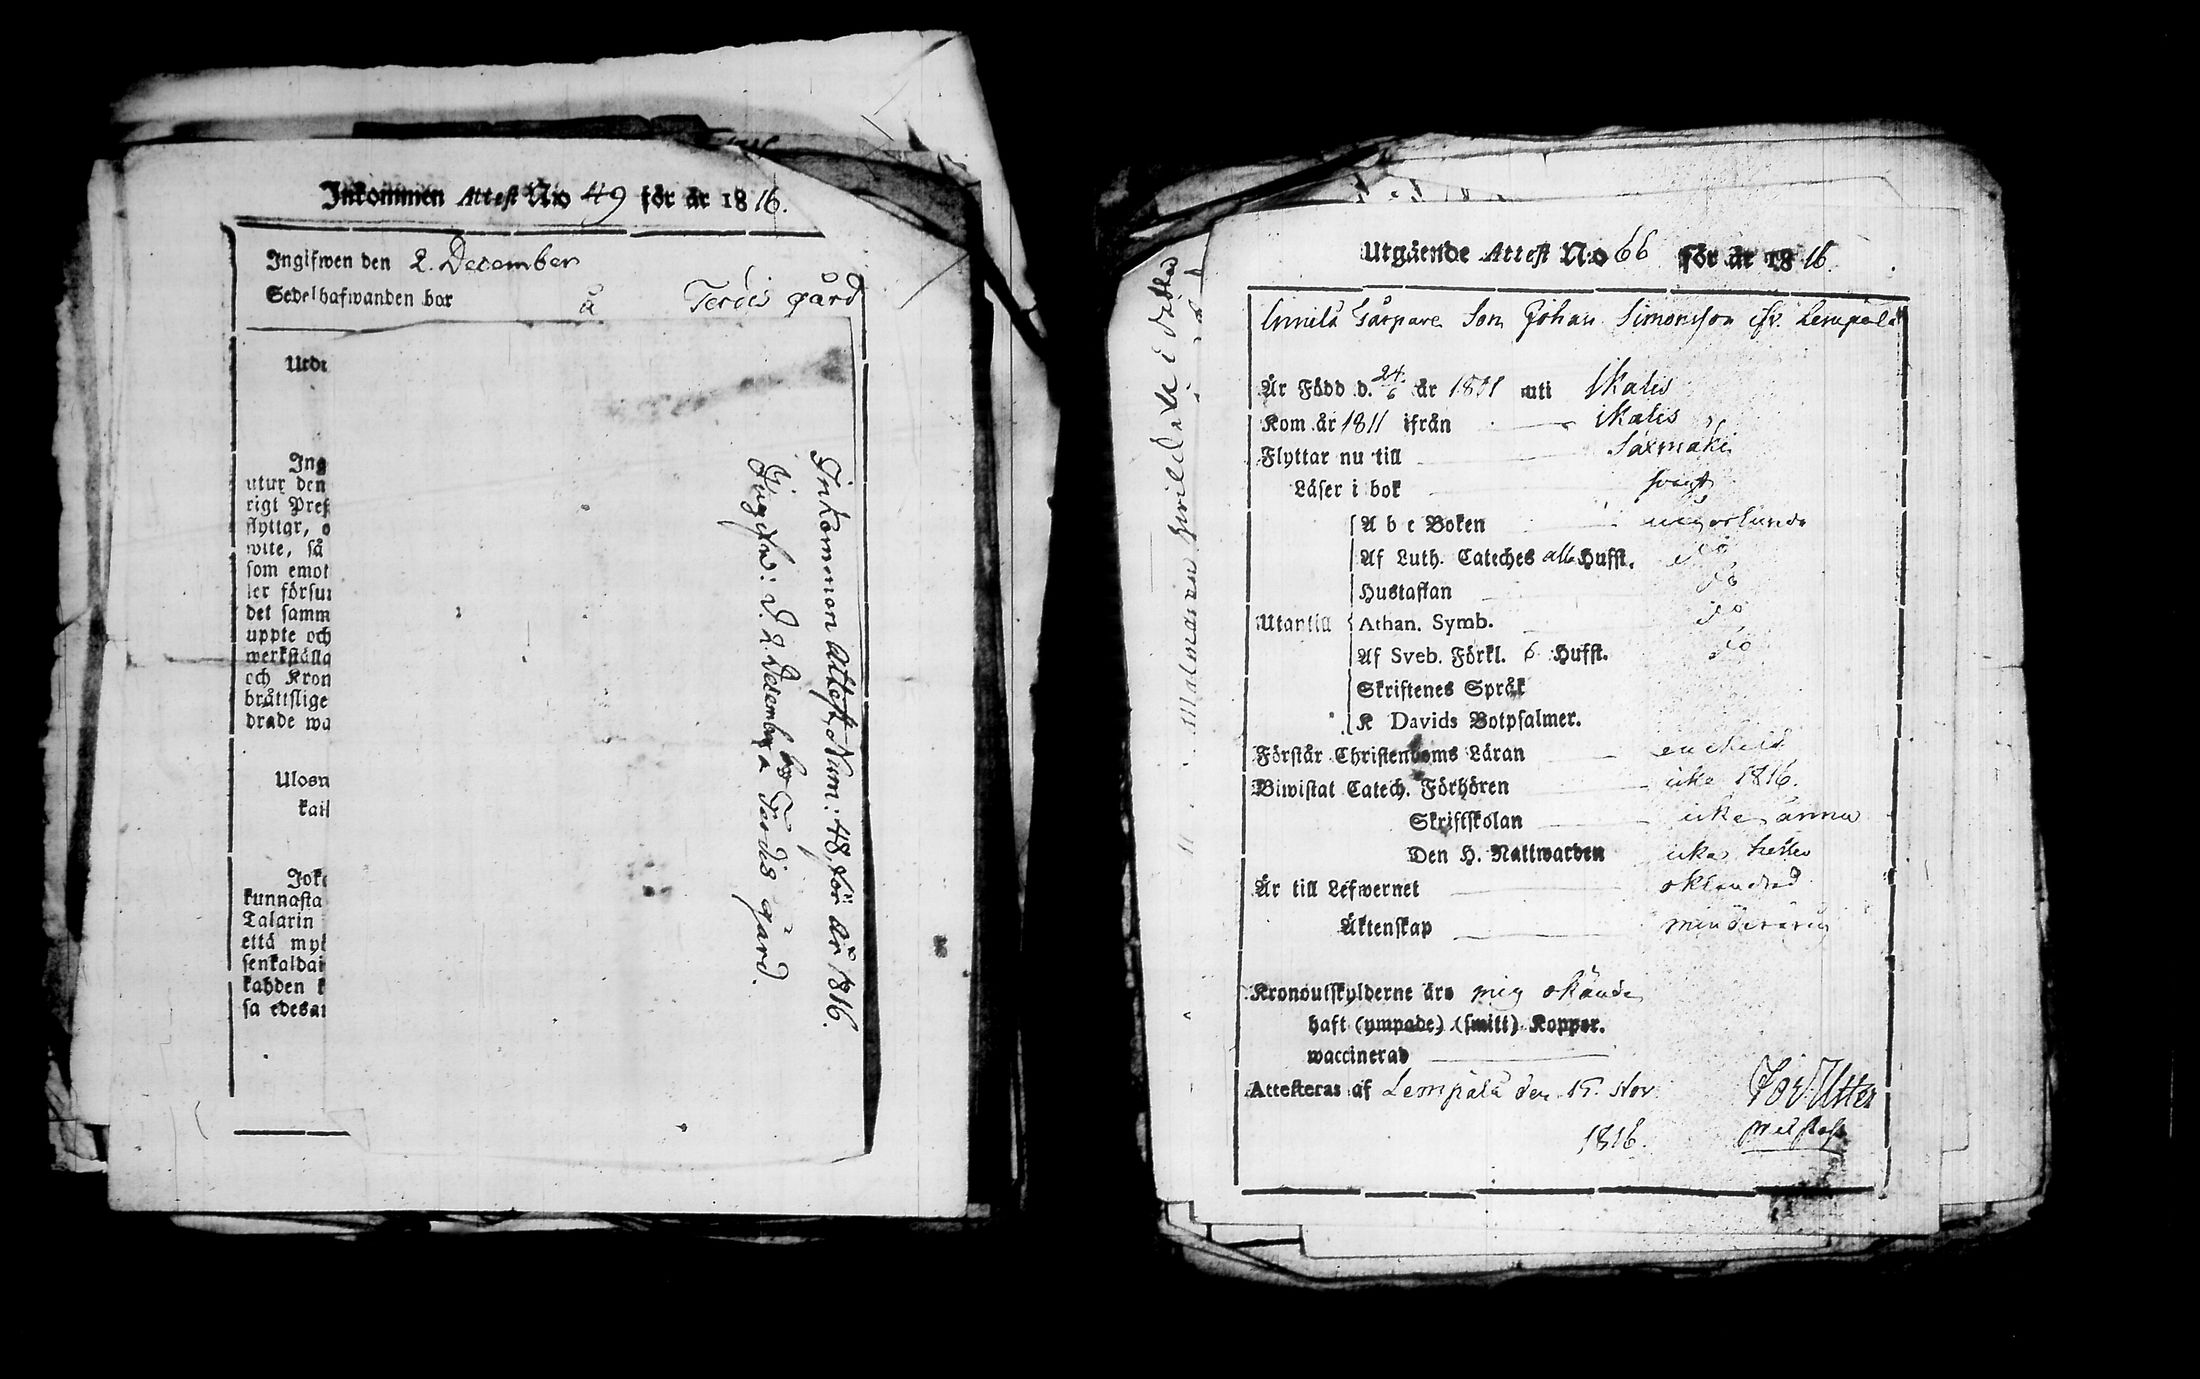 Inkommen Attest No 49 för år 1816.
Ingifwen den 2. December
Sedelhafwanden bor å Terdis gård
Utdr
Ing
utur den
rigt Pres
flyttar, o
wite, så
som emot
ler försu
det samm
uppte och
werkställa
och Kron
bråttslige
drade wa
Ulosn
kail
Joka
kunnasta
Talarin
että myl
senkaldai
kahden k
sa edesan
Inkommen Attest Num: 48 för år 1816.
Ingifw: d. 2. December bor å Terdis gård.
Utgående Attest No 66 för år 1816.
Son Johan Simonsson ifr. Lempälä
År Född d. 24/6 år 1801 uti Ikalis
Kom år 1811 ifrån Ikalis
Flyttar nu till Saxmäki
Läser i bok svagt
A b c Boken
Af Luth. Cateches alla Hufst. do
Hustaflan do
Utantill Athan. Symb. do
Af Sveb. Förkl. 6 Hufst. do
Skriftenes Språk
K Davids Botpsalmer.
Förstår Christendoms Läran enskild
Biwistat Catech. Förhören icke 1816.
Skriftskolan icke ännu
Den H. Nattwarden icke heller
År till Lefwernet oklandrad
Äktenskap minderårig
Kronoutskylderne äro mig okände
haft (ympade) (smitt) Koppor.
waccinerad
Attesteras af Lempälä den 15. Nov.
1816.